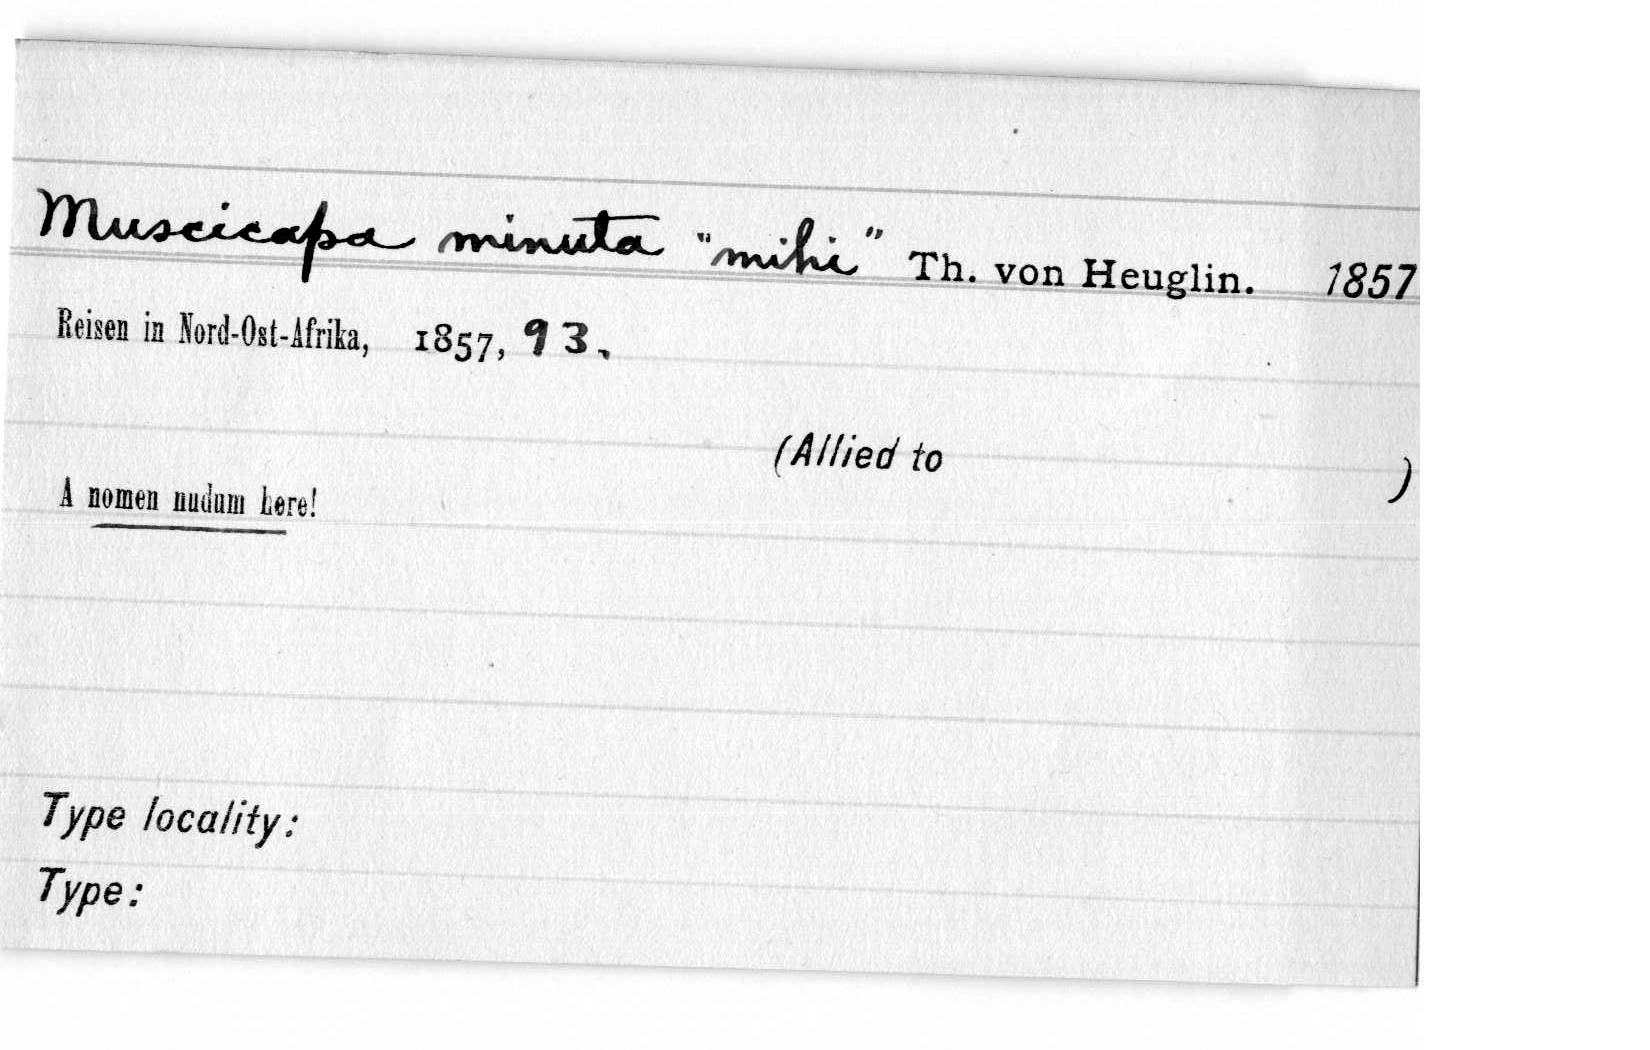 Muscicapa minuta "mihi" Th. von Heuglin. 1857
Reisen in Nord-Ost-Afrika, 1857, 93.
(Allied to )
A nomen nudum here!
Type locality:
Type: